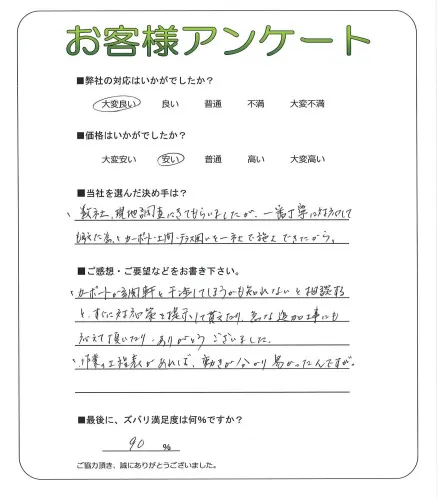 お客様アンケート
■弊社の対応はいかがでしたか？
大変良い 良い 普通 不満 大変不満
■価格はいかがでしたか？
大変安い 安い 普通 高い 大変高い
■当社を選んだ決め手は？
、数社、現地調査にきてもらいましたが、一番丁寧に対応して
頂けた為、とカーポート・土間・テラス囲いを一社で施工できたから。
■ご感想・ご要望などをお書き下さい。
、カーポートが玄関軒と干渉してしまうかも知れないと相談する
と、すぐに対応策を提示して貰えたり、急な追加工事にも
応えて頂いたり、ありがとうございました。
、作業の工程表があれば、動きが分かり易かったんですが。
■最後に、ズバリ満足度は何％ですか？
90 ％
ご協力頂き、誠にありがとうございました。